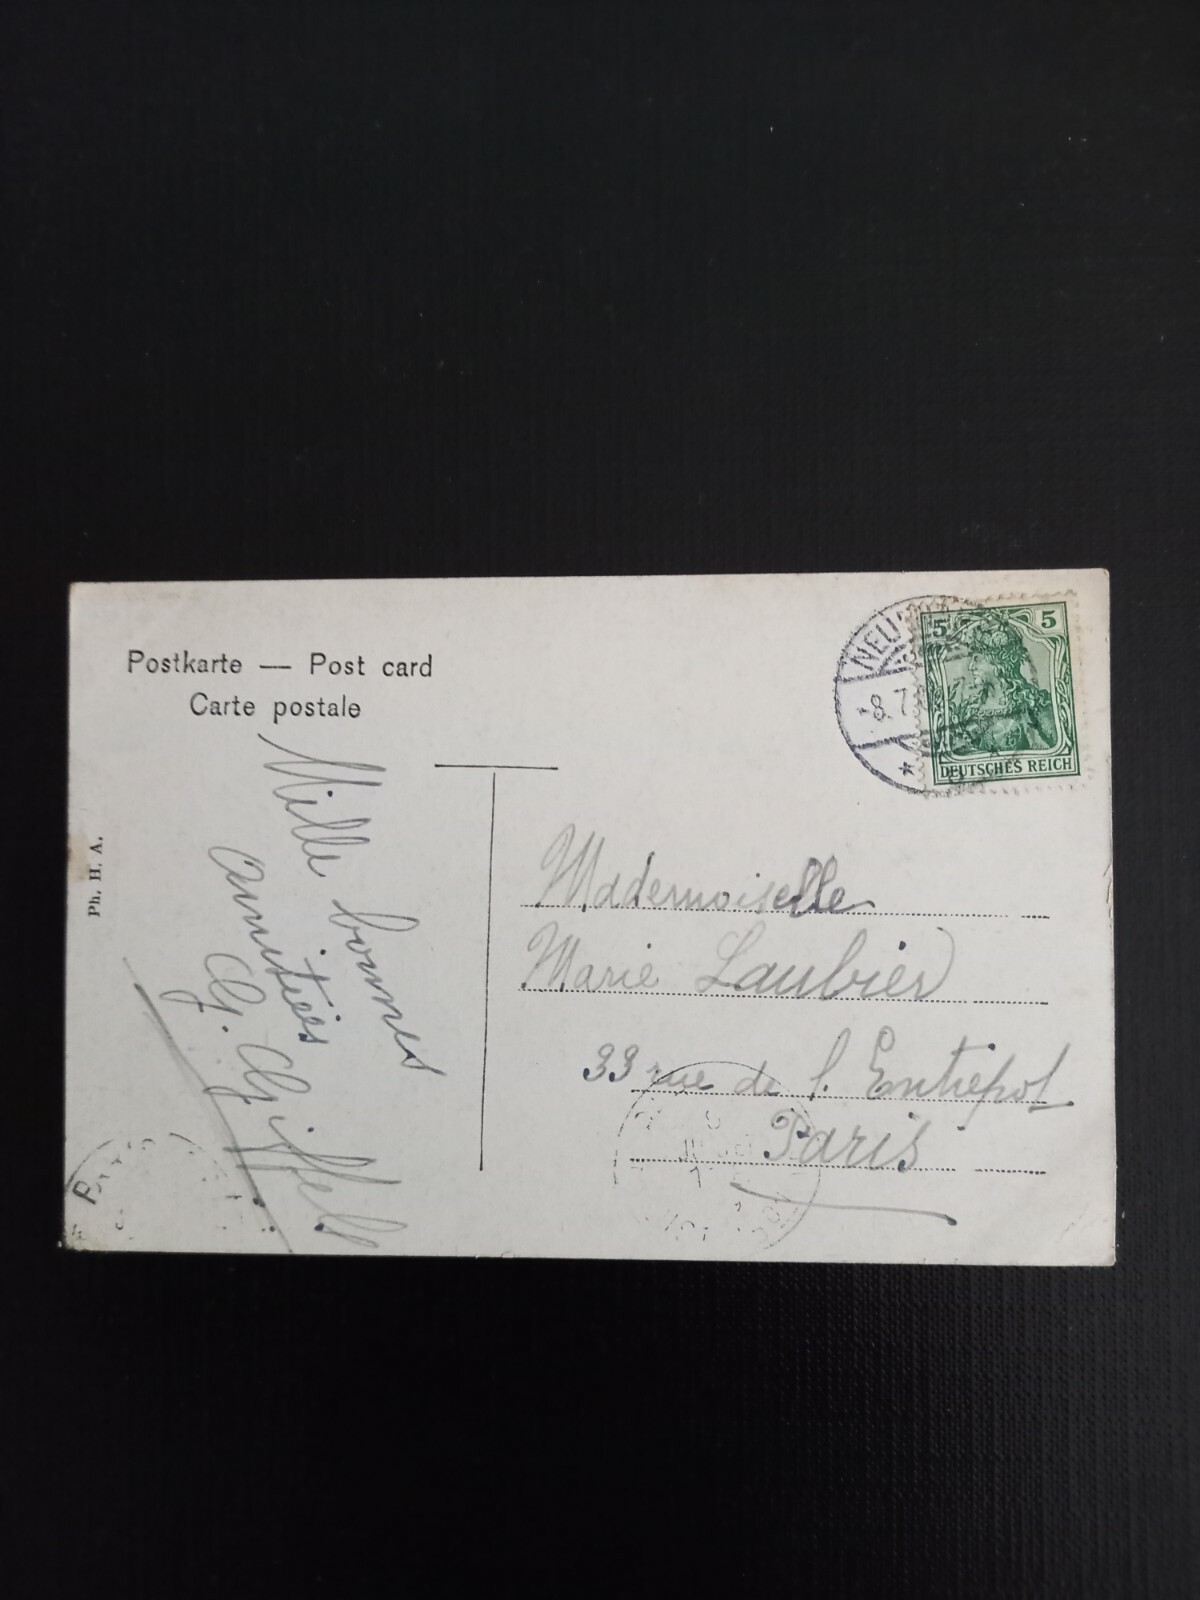 Postkarte — Post card
Carte postale
Mille bonnes
amitiés
G. Giffel
Ph. H. A.
5 5
DEUTSCHES REICH
8.7
Mademoiselle
Marie Laubier
33 rue de l'Entrepot
Paris